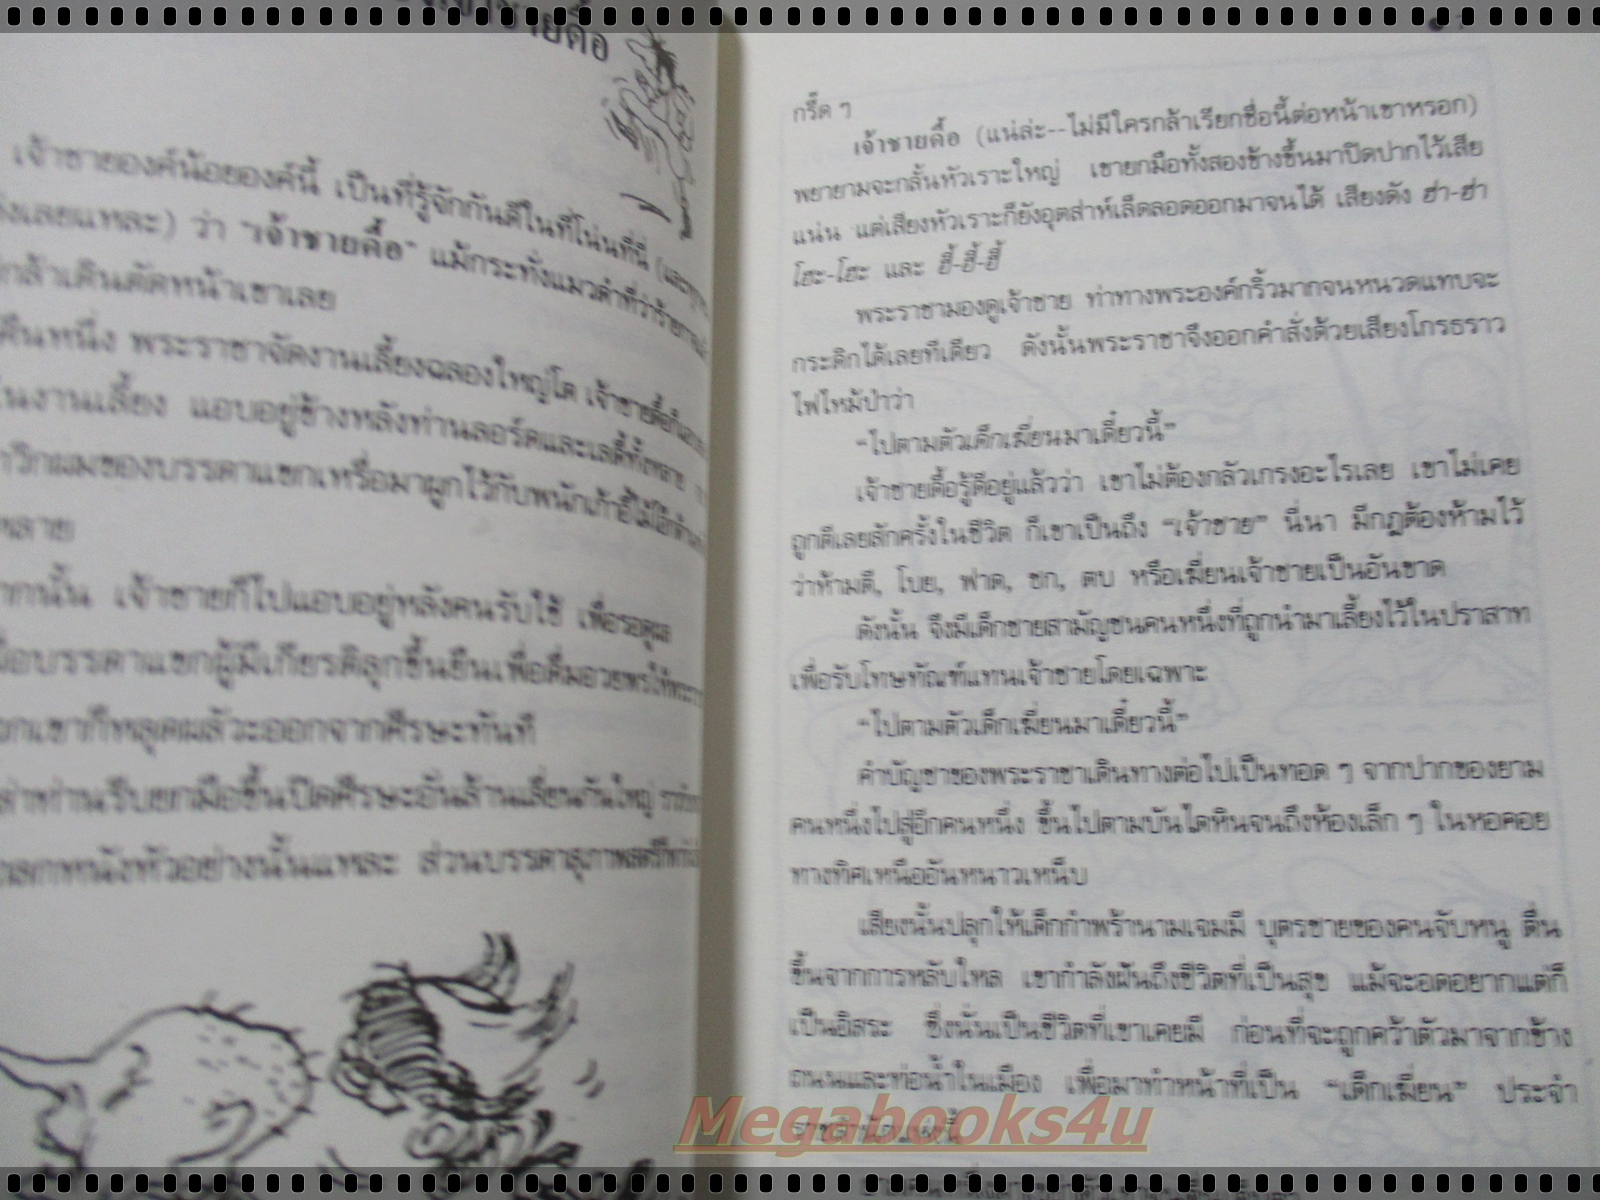 เจ้าชายดื้อ
เจ้าชายองค์น้อยองค์นี้ เป็นที่รู้จักกันดีในที่โน่นที่นี่
แหละ) ว่า "เจ้าชายดื้อ" แม้กระทั่งแมวดำที่ว่าร้าย
กล้าเดินตัดหน้าเขาเลย
คืนหนึ่ง พระราชาจัดงานเลี้ยงฉลองใหญ่โต เจ้าชายดื้อก็
ในงานเลี้ยง แอบอยู่ข้างหลังท่านลอร์ดและเลดี้ทั้งหลาย
วิกผมของบรรดาแขกเหรื่อมาผูกไว้กับพนักเก้าอี้ไม้โอ๊ก
หลาย
จากนั้น เจ้าชายก็ไปแอบอยู่หลังคนรับใช้ เพื่อรอดูผล
เมื่อบรรดาแขกผู้มีเกียรติลุกขึ้นยืนเพื่อดื่มอวยพรให้พระ
เขาก็หลุดผลัวะออกจากศีรษะทันที
ท่านรีบยกมือขึ้นปิดศีรษะอันล้านเลี่ยนกันใหญ่
หนังหัวอย่างนั้นแหละ ส่วนบรรดาสุภาพสตรี
กรี๊ด ๆ
เจ้าชายดื้อ (แน่ล่ะ--ไม่มีใครกล้าเรียกชื่อนี้ต่อหน้าเขาหรอก)
พยายามจะกลั้นหัวเราะใหญ่ เขายกมือทั้งสองข้างขึ้นมาปิดปากไว้เสีย
แน่น แต่เสียงหัวเราะก็ยังอุตส่าห์เล็ดลอดออกมาจนได้ เสียงดัง ฮ่า-ฮ่า
โฮะ-โฮะ และ ฮี้-ฮี้-ฮี้
พระราชามองดูเจ้าชาย ท่าทางพระองค์กริ้วมากจนหนวดแทบจะ
กระดิกได้เลยทีเดียว ดังนั้นพระราชาจึงออกคำสั่งด้วยเสียงโกรธราว
ไฟไหม้ป่าว่า
"ไปตามตัวเด็กเฆี่ยนมาเดี๋ยวนี้"
เจ้าชายดื้อรู้ดีอยู่แล้วว่า เขาไม่ต้องกลัวเกรงอะไรเลย เขาไม่เคย
ถูกตีเลยสักครั้งในชีวิต ก็เขาเป็นถึง "เจ้าชาย" นี่นา มีกฎต้องห้ามไว้
ว่าห้ามตี, โบย, ฟาด, ชก, ตบ หรือเฆี่ยนเจ้าชายเป็นอันขาด
ดังนั้น จึงมีเด็กชายสามัญชนคนหนึ่งที่ถูกนำมาเลี้ยงไว้ในปราสาท
เพื่อรับโทษทัณฑ์แทนเจ้าชายโดยเฉพาะ
"ไปตามตัวเด็กเฆี่ยนมาเดี๋ยวนี้"
คำบัญชาของพระราชาเดินทางต่อไปเป็นทอด ๆ จากปากของยาม
คนหนึ่งไปสู่อีกคนหนึ่ง ขึ้นไปตามบันไดหินจนถึงห้องเล็ก ๆ ในหอคอย
ทางทิศเหนืออันหนาวเหน็บ
เสียงนั้นปลุกให้เด็กกำพร้านามเจมมี บุตรชายของคนจับหนู ตื่น
ขึ้นจากการหลับใหล เขากำลังฝันถึงชีวิตที่เป็นสุข แม้จะอดอยากแต่ก็
เป็นอิสระ ซึ่งนั่นเป็นชีวิตที่เขาเคยมี ก่อนที่จะถูกคว้าตัวมาจากข้าง
ถนนและท่อน้ำในเมือง เพื่อมาทำหน้าที่เป็น "เด็กเฆี่ยน" ประจำ
Megabooks4u